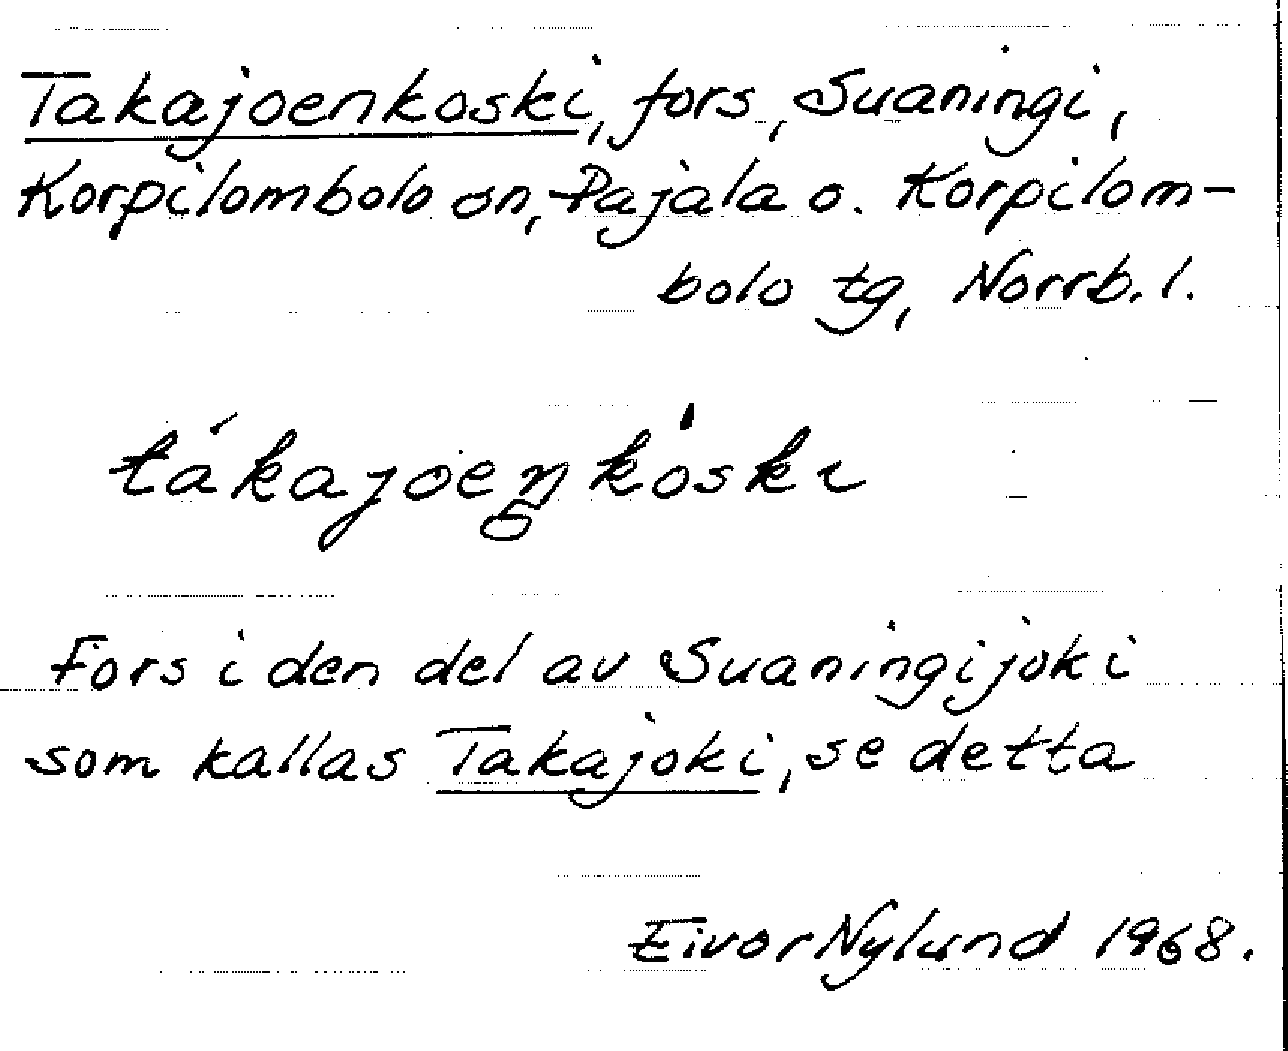 Takajoenkoski, fors, Suaningi,
Korpilombolo sn, Pajala o. Korpilom-
bolo tg, Norrb. l.
tákajoeŋkòskɩ
Fors i den del av Suaningijoki
som kallas Takajoki, se detta
Eivor Nylund 1968.